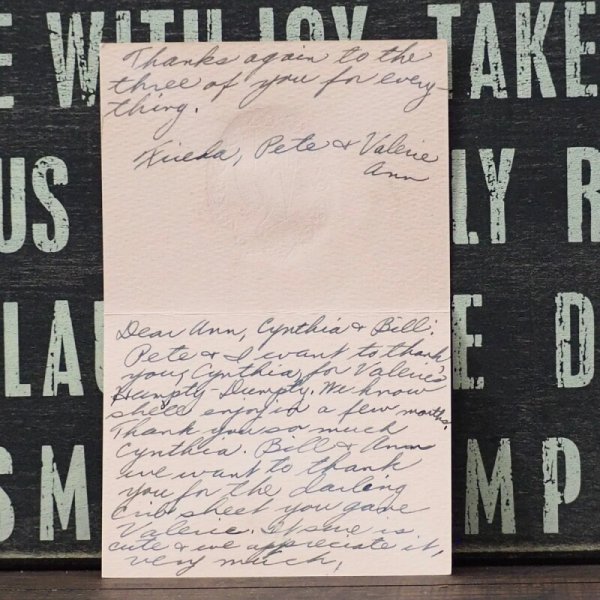 E WITH JOY TAKE
US LY R
LA E D
SM MP
Thanks again to the
three of you for every-
thing.
Pete & Valerie
Ann
Dear Ann, Cynthia & Bill:
Pete & I want to thank
you, Cynthia, for Valerie's
Humpty-Dumpty. We know
she'll enjoy in a few months.
Thank you so much
Cynthia. Bill & Ann
we want to thank
you for the darling
Crib sheet you gave
Valerie. It sure is
cute & we appreciate it,
very much,